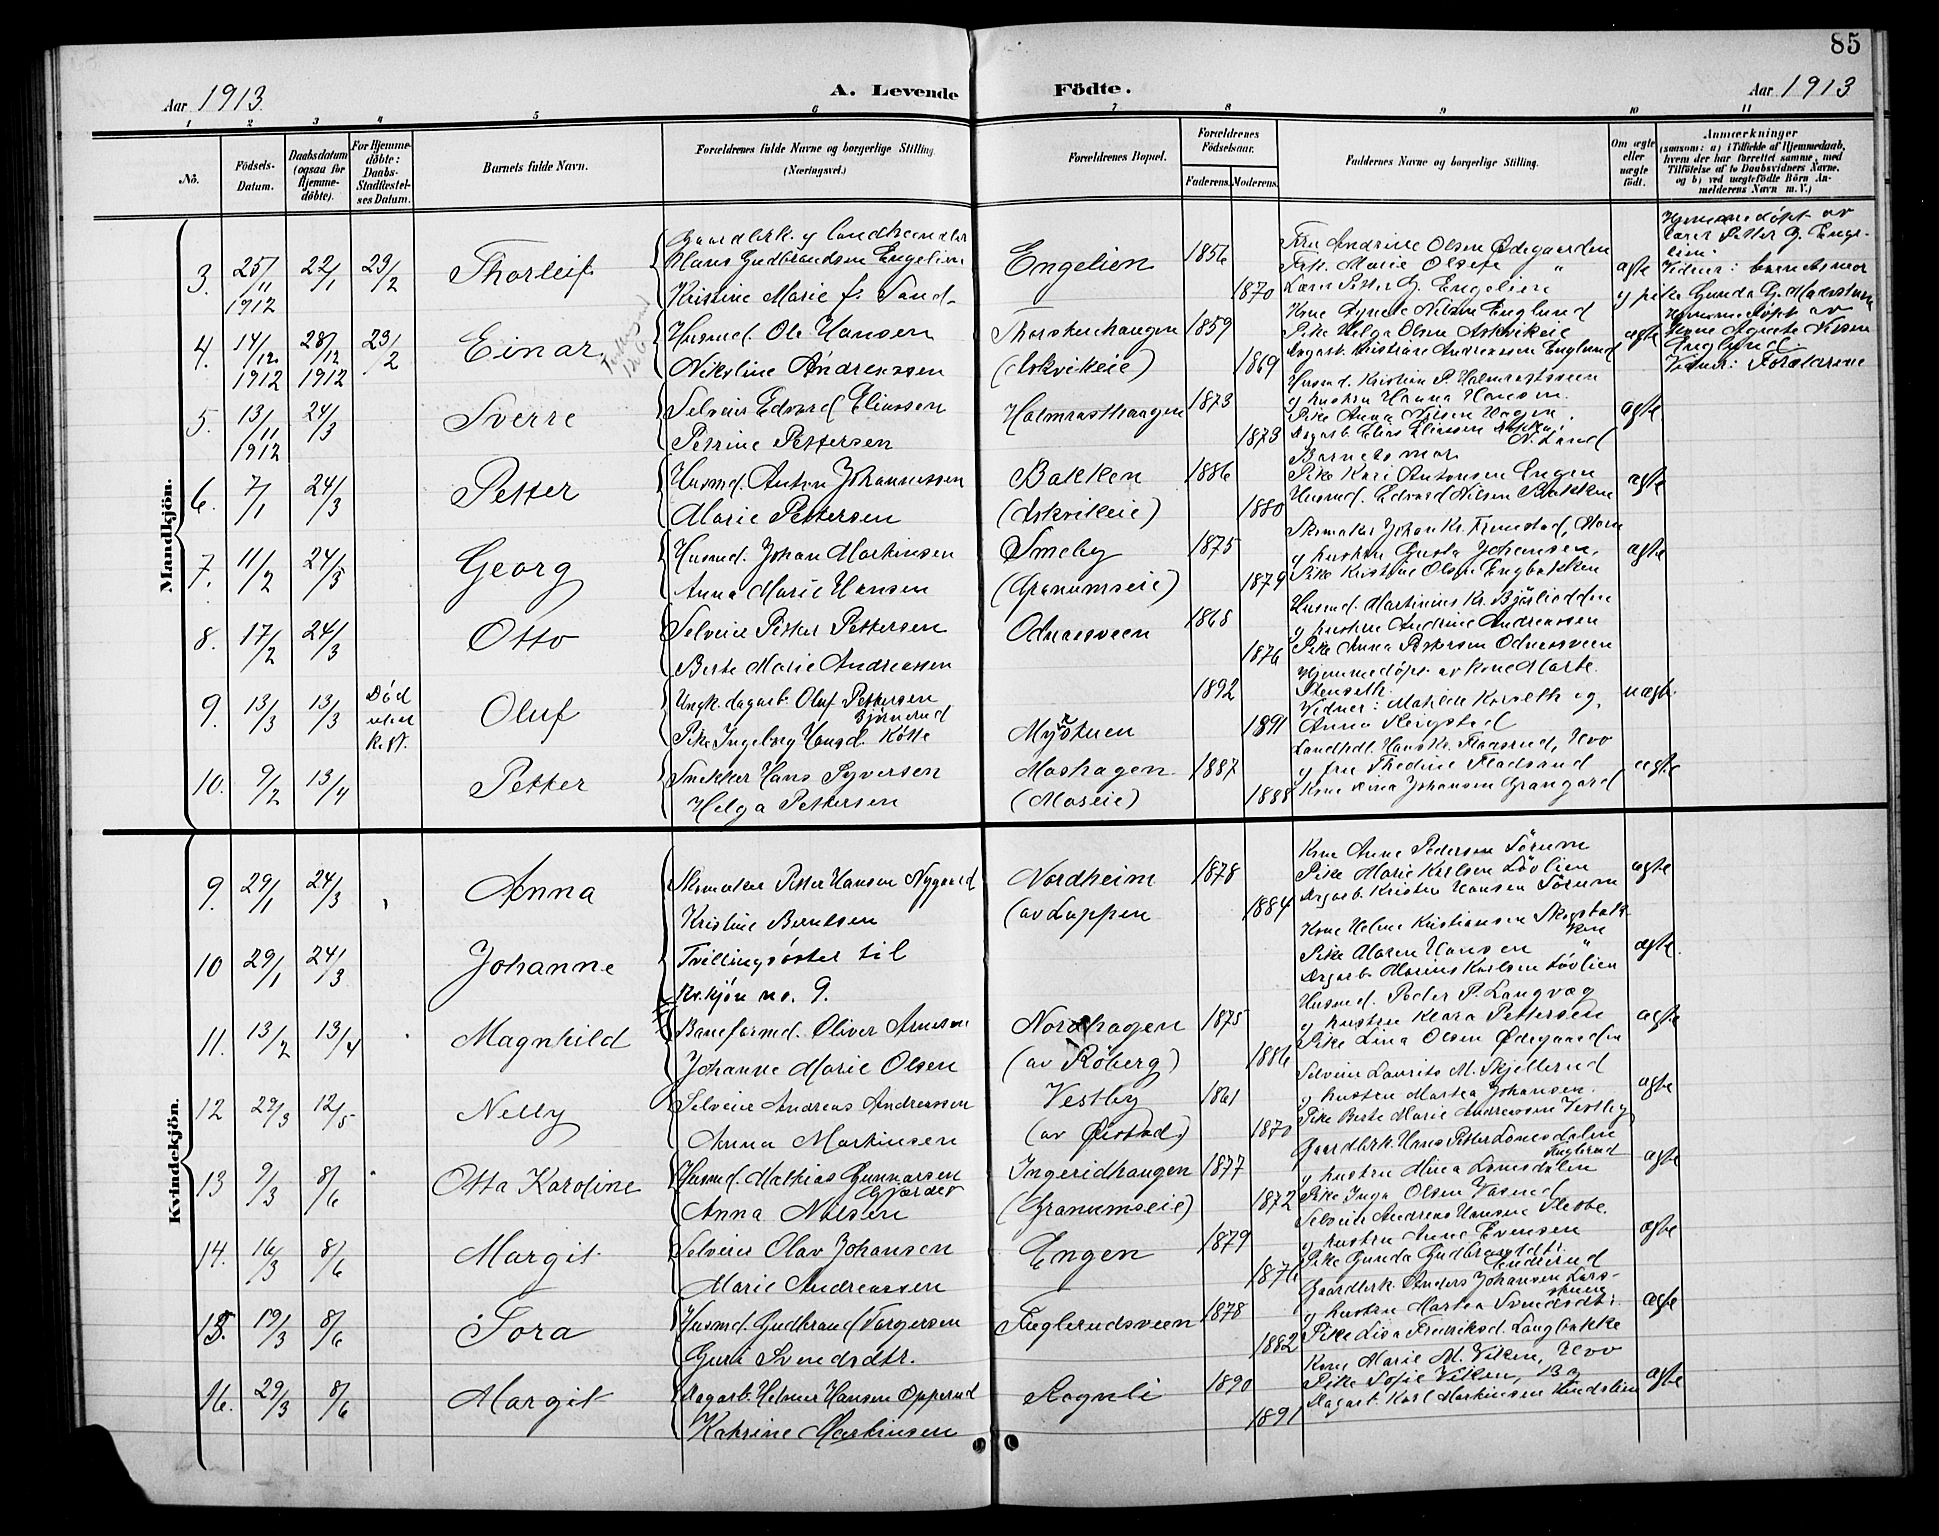 85
Aar 1913.
A. Levende
Födte.
Aar 1913
1 2 3 4 5 6 7 8 9 10 11
No.
Födsels-Datum.
Daabsdatum (ogsaa for Hjemme-døbte).
For Hjemme-døbte: Daabs-Stadfæstel-ses Datum.
Barnets fulde Navn.
Forældrenes fulde Navne og borgerlige Stilling.
(Næringsvei.)
Forældrenes Bopæl.
Forældrenes Födselsaar.
Faderens. Moderens.
Faddernes Navne og borgerlige Stilling.
Om ægte eller uægte født.
Anmærkninger
(saasom: a) i Tilfælde af Hjemmedaab,
hvem der har forrettet samme, med
Tilføielse af to Daabsvidners Navne,
og b) ved uægtefödte Börn An-
melderens Navn m. V.)
Mandkjön.
3. 25/11 1912 22/1 23/2 Thorleif
Gaardbrk. og landhandler
Hans Gudbrandsen Engelien
Kristine Marie f. Sand
Engelien 1856 1870
Fru Andrine Olsen Ødegaarden
Frk. Marie Olsen "
Lærer Petter G. Engelien
ægte
Hjemmedöpt av
lærer Petter G. Enge-
lien.
Vidner: barnets mor
og pike Gunda G.
4. 14/12 1912 28/12 1912 23/2 Einar
Husmd. Ole Hansen
Nikoline Andreassen
Thorstenhaugen
(Askvikeie)
1859 1869
Kone Agnete Nilsen Englund
Pike Helga Olsen Askvikeie
Dagarb. Kristiane Andreassen Englund
ægte
Hjemmedöpt av
Kone Agnete Nilsen
Englund.
Vidner: Forældrene
5. 13/11 1912 24/3 Sverre
Selveier Edvard Eliassen
Petrine Pettersen
Halmrasthaugen 1873 1873
Husmd. Kristian P. Halmrasteien
og hustru Hanna Hansen.
Pike Anna Nilsen Hagen.
Dagarb. Elias Eliassen
N. Land
ægte
6. 7/1 24/3 Petter
Husmd. Anton Johannessen
Marie Pettersen
Bakken
(Askvikeie)
1886 1880
Barnets mor
Pike Kari Antonsen Engen
Husmd. Edvard Nilsen Bakken
ægte
7. 11/2 24/3 Georg
Husmd. Johan Martinsen
Anna Marie Hansen
Smeby
(Granumseie)
1875 1879
Skomaker Johan Kr.
og hustru Gusta Johansen,
Pike Kristine Olsen Engbakken
ægte
8. 17/2 24/3 Otto
Selveier Petter Pettersen
Berte Marie Andreassen
Odnesveen 1868 1876
Husmd. Martinius Kr.
og hustru Andrine Andreassen
Pike Anna Pettersen Odnesveen
9. 13/3 13/3 Död uten kft. Oluf
Ungk. dagarb. Oluf Pettersen
Björnerud
Pike Ingeborg Hansd. Kötte
Mystuen 1892 1891
Hjemmedöpt av kone Marte
Stenseth.
Vidner: Mathilde Korseth og
Anna
uægte
10. 9/2 13/4 Petter
Snekker Hans Syversen
Helga Pettersen
Moshagen
(Moseie)
1887 1888
Landhdl. Hans Kr. Fladsrud, Hov
og fru Thedine Fladsrud
Kone Dina Johansen Grangaard
ægte
Kvindekjön.
9. 29/1 24/3 Anna
Skomaker Petter Hansen Nygaard
Kristine Berntsen
Nordheim
(av Loppen
1878 1884
Kone Anne Pedersen Sörum
Pike Marie Karlsen Lövlien
Dagarb. Kristen Hansen Sörum
ægte
10 29/1 24/3 Johanne
Tvillingsöster til
Kv.kjön no. 9.
Kone Helene Kristiansen Skogsbak-
ken
Pike Maren Hansen "
Dagarb. Marius Karlsen Lövlien
ægte.
11. 13/2 13/4 Magnhild
Baneformd. Oliver Arnesen
Johanne Marie Olsen
Nordhagen
(av Röberg)
1875 1886
Husmd. Peder P. Langvæg
og hustru Klara Pettersen
Pike Lina Olsen Ødegaarden
ægte
12 29/3 12/5 Nelly
Selveier Andreas Andreassen
Anna Martinsen
Vestby
(av Øistad)
1861 1870
Selveier Laurits M. Skjellerud
og hustru Martea Johansen.
Pike Berte Marie Andreassen Vestby
ægte
13 9/3 8/6 Otta Karoline
Husmd. Mathias Gunnarsen
Anna Nilsen
Ingeridhaugen
(Granumseie)
1877 1872
Gaardbrk. Hans Petter Lomsdalen
og hustru Mina Lomsdalen
Pike Inga Olsen
ægte
14. 16/3 8/6 Margit
Selveier Olav Johansen
Marie Andreassen
Engen 1879 1876
Selveier Andreas Hansen
og hustru Anne Evensen
Pike Gunda Gudbrandsdtr.
ægte
15. 19/3 8/6 Tora
Husmd. Gudbrand Torgersen
Guri Svendsdtr.
Fuglerudsveen 1878 1882
Gaardbrk. Anders Johansen Lars-
stuen
og hustru Martea Svendsdtr.
Pike Lisa Fredriksd. Langbakke
ægte
16. 29/3 8/6 Margit
Dagarb. Helmer Hansen Opperud
Katrine Martinsen
Rognli 1890 1891
Kone Marie M. Viken, Hov
Pike Sofie Viken,
Dagarb. Karl Martinsen
ægte